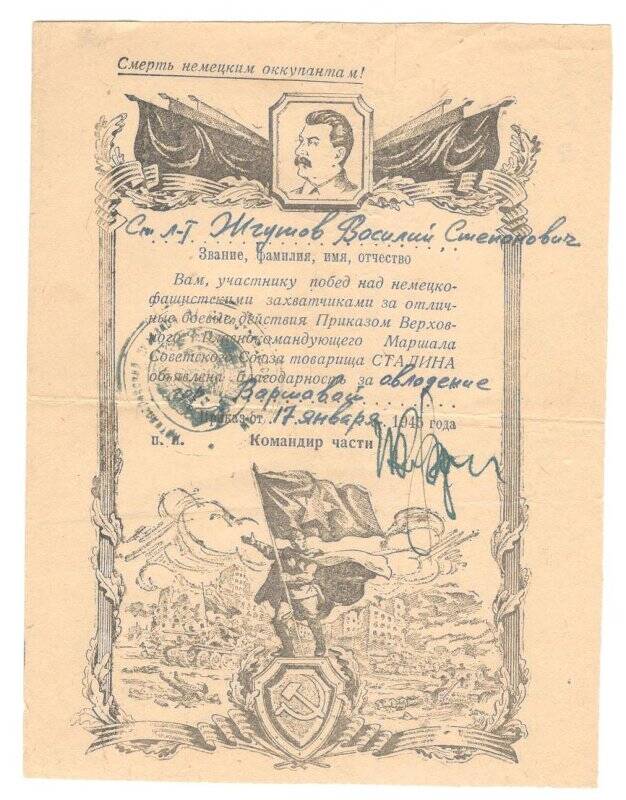 Смерть немецким оккупантам!
Ст л-т Жгутов Василий Степанович
Звание, фамилия, имя, отчество
Вам, участнику побед над немецко-
фашистскими захватчиками за отлич-
ные боевые действия Приказом Верхов-
ного Главнокомандующего Маршала
Советского Союза товарища СТАЛИНА
объявлена благодарность за овладение
гор. Варшавай
Приказ от 17 января 1945 года
п. п. Командир части